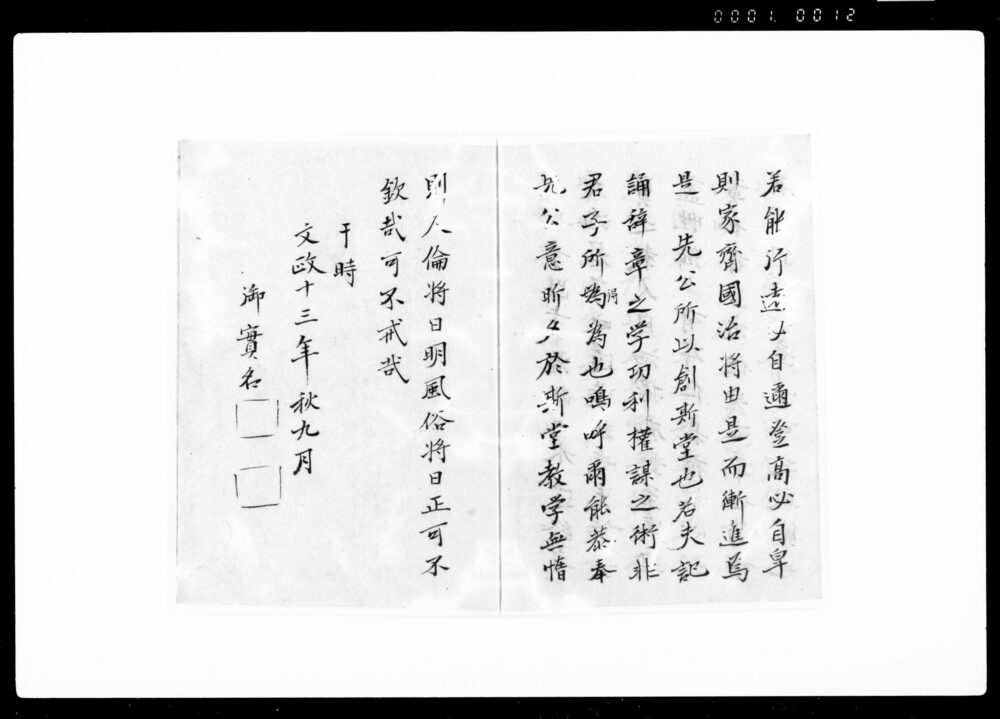 0001.0012
若能行遠必自邇登高必自卑
則家齊國治将由是而漸進焉
是　先公所以創斯堂也若夫記
誦辞章之学功利權謀之術非
君子所為将為也嗚呼爾能恭奉
先公意昕夕於斯堂教学無惰
則人倫将日明風俗将日正可不
欽哉可不戒哉
于時
文政十三年秋九月
御實名